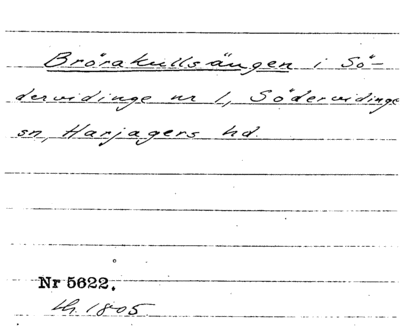 Brörakullsängen i Sö-
dervidinge nr 1, Södervidinge
sn, Harjagers hd.
Nr 5622.
1805.